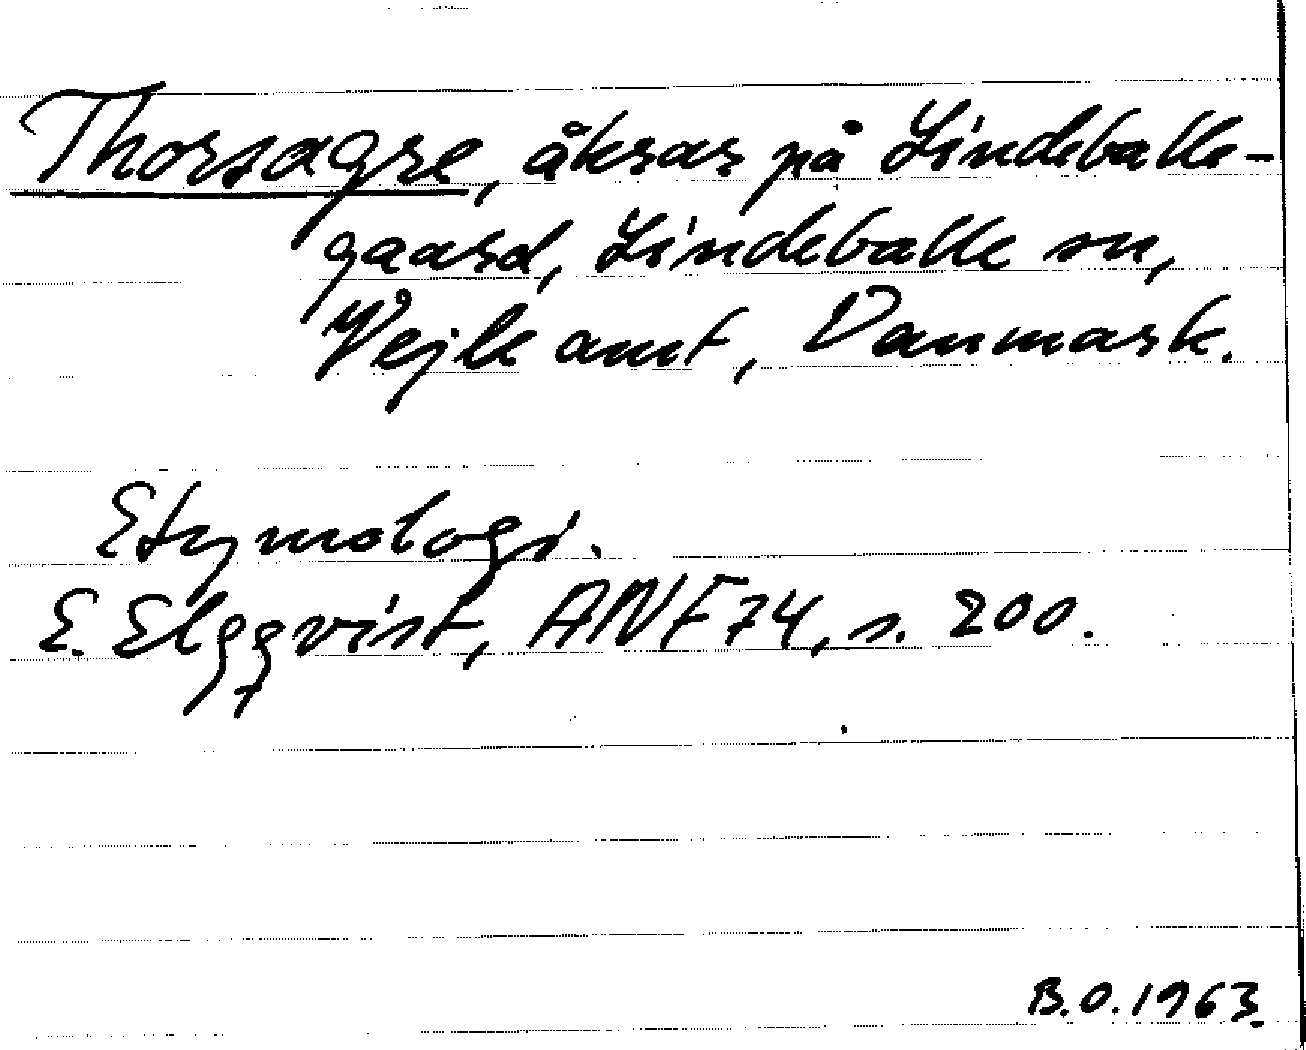 Thorsagre, åkrar på Lindeballe-
gaard, Lindeballe sn,
Vejle amt, Danmark.
Etymologi.
E. Elgqvist, ANF 74, s. 200.
B.O. 1963.